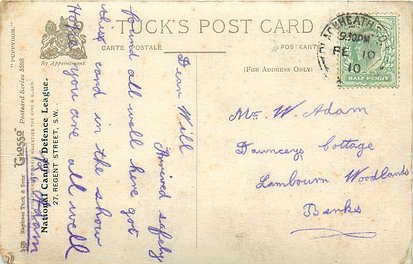 TUCK'S POST CARD
CARTE POSTALE
POSTKARTE
By Appointment
(FOR ADDRESS ONLY)
BLACKHEATH
9.30PM
FE 10
10
HALF PENNY
Dear Will
Arrived safely
found all well have got
this card in the show
Hope you are all well
Adam
Mr. W. Adam
Daunceys Cottage
Lambourn Woodlands
Berks
"PUPPYDOM"
Raphael Tuck & Sons' "Glosso" Postcard Series 5585
National Canine Defence League.
27, REGENT STREET, S.W.